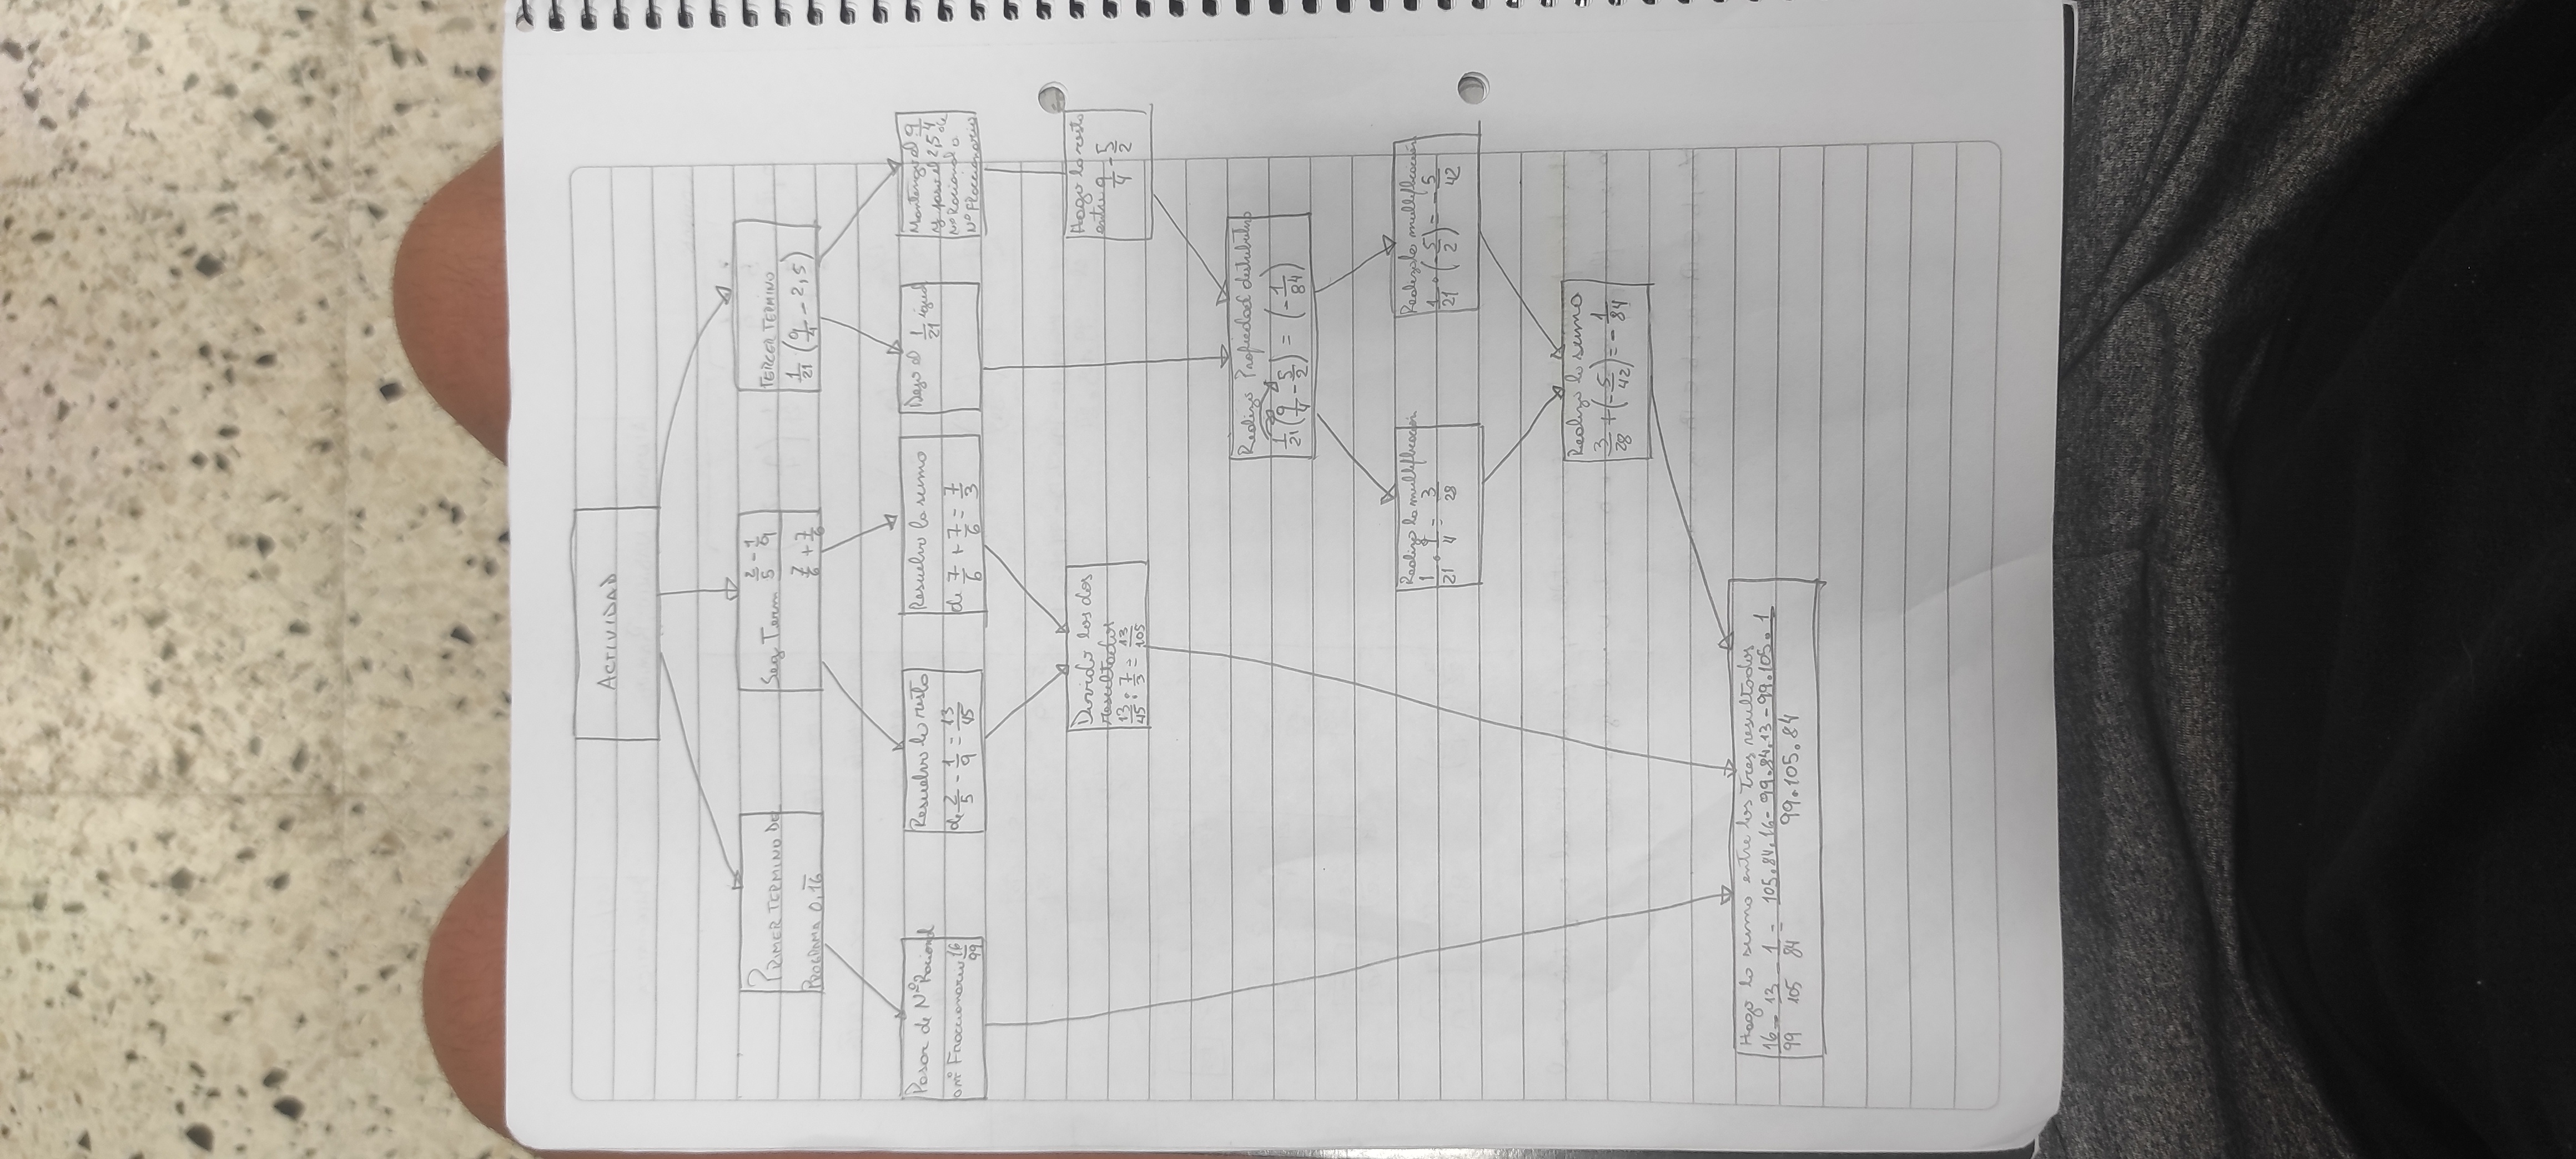 ACTIVIDAD
PRIMER TERMINO DE
PROGRAMA 0,1̅6̅
Seg Term 2/5 - 1/9
7/6 + 7/6
TERCER TERMINO
1/21 (9/4 - 2,5)
Pasar de Nº Racional
a nº Fraccionario 16/99
Resuelvo la resta
de 2/5 - 1/9 = 13/45
Resuelvo la suma
de 7/6 + 7/6 = 7/3
Dejo el 1/21 igual
Mantengo el 9/4
y paso el 2,5 de
Nº Racional a
Nº Fraccionario
Divido los dos
resultados
13/45 : 7/3 = 13/105
Hago la resta
entre 9/4 - 5/2
Realizo Propiedad distributiva
1/21 (9/4 - 5/2) = (-1/84)
Realizo la multiplicación
1/21 . 9/4 = 3/28
Realizo la multiplicación
1/21 . (-5/2) = -5/42
Realizo la suma
3/28 + (-5/42) = -1/84
Hago la suma entre los tres resultados
16/99 - 13/105 - 1/84 = 105.84.16 - 99.84.13 - 99.105.1
99.105.84